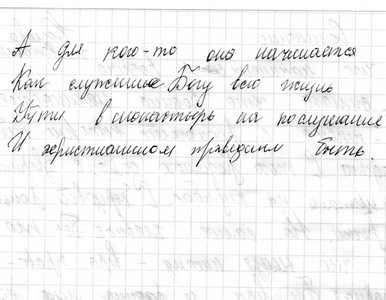 А для кого-то оно начинается
Как служение Богу всю жизнь
Уйти в монастырь на послушание
И христианином праведным быть.